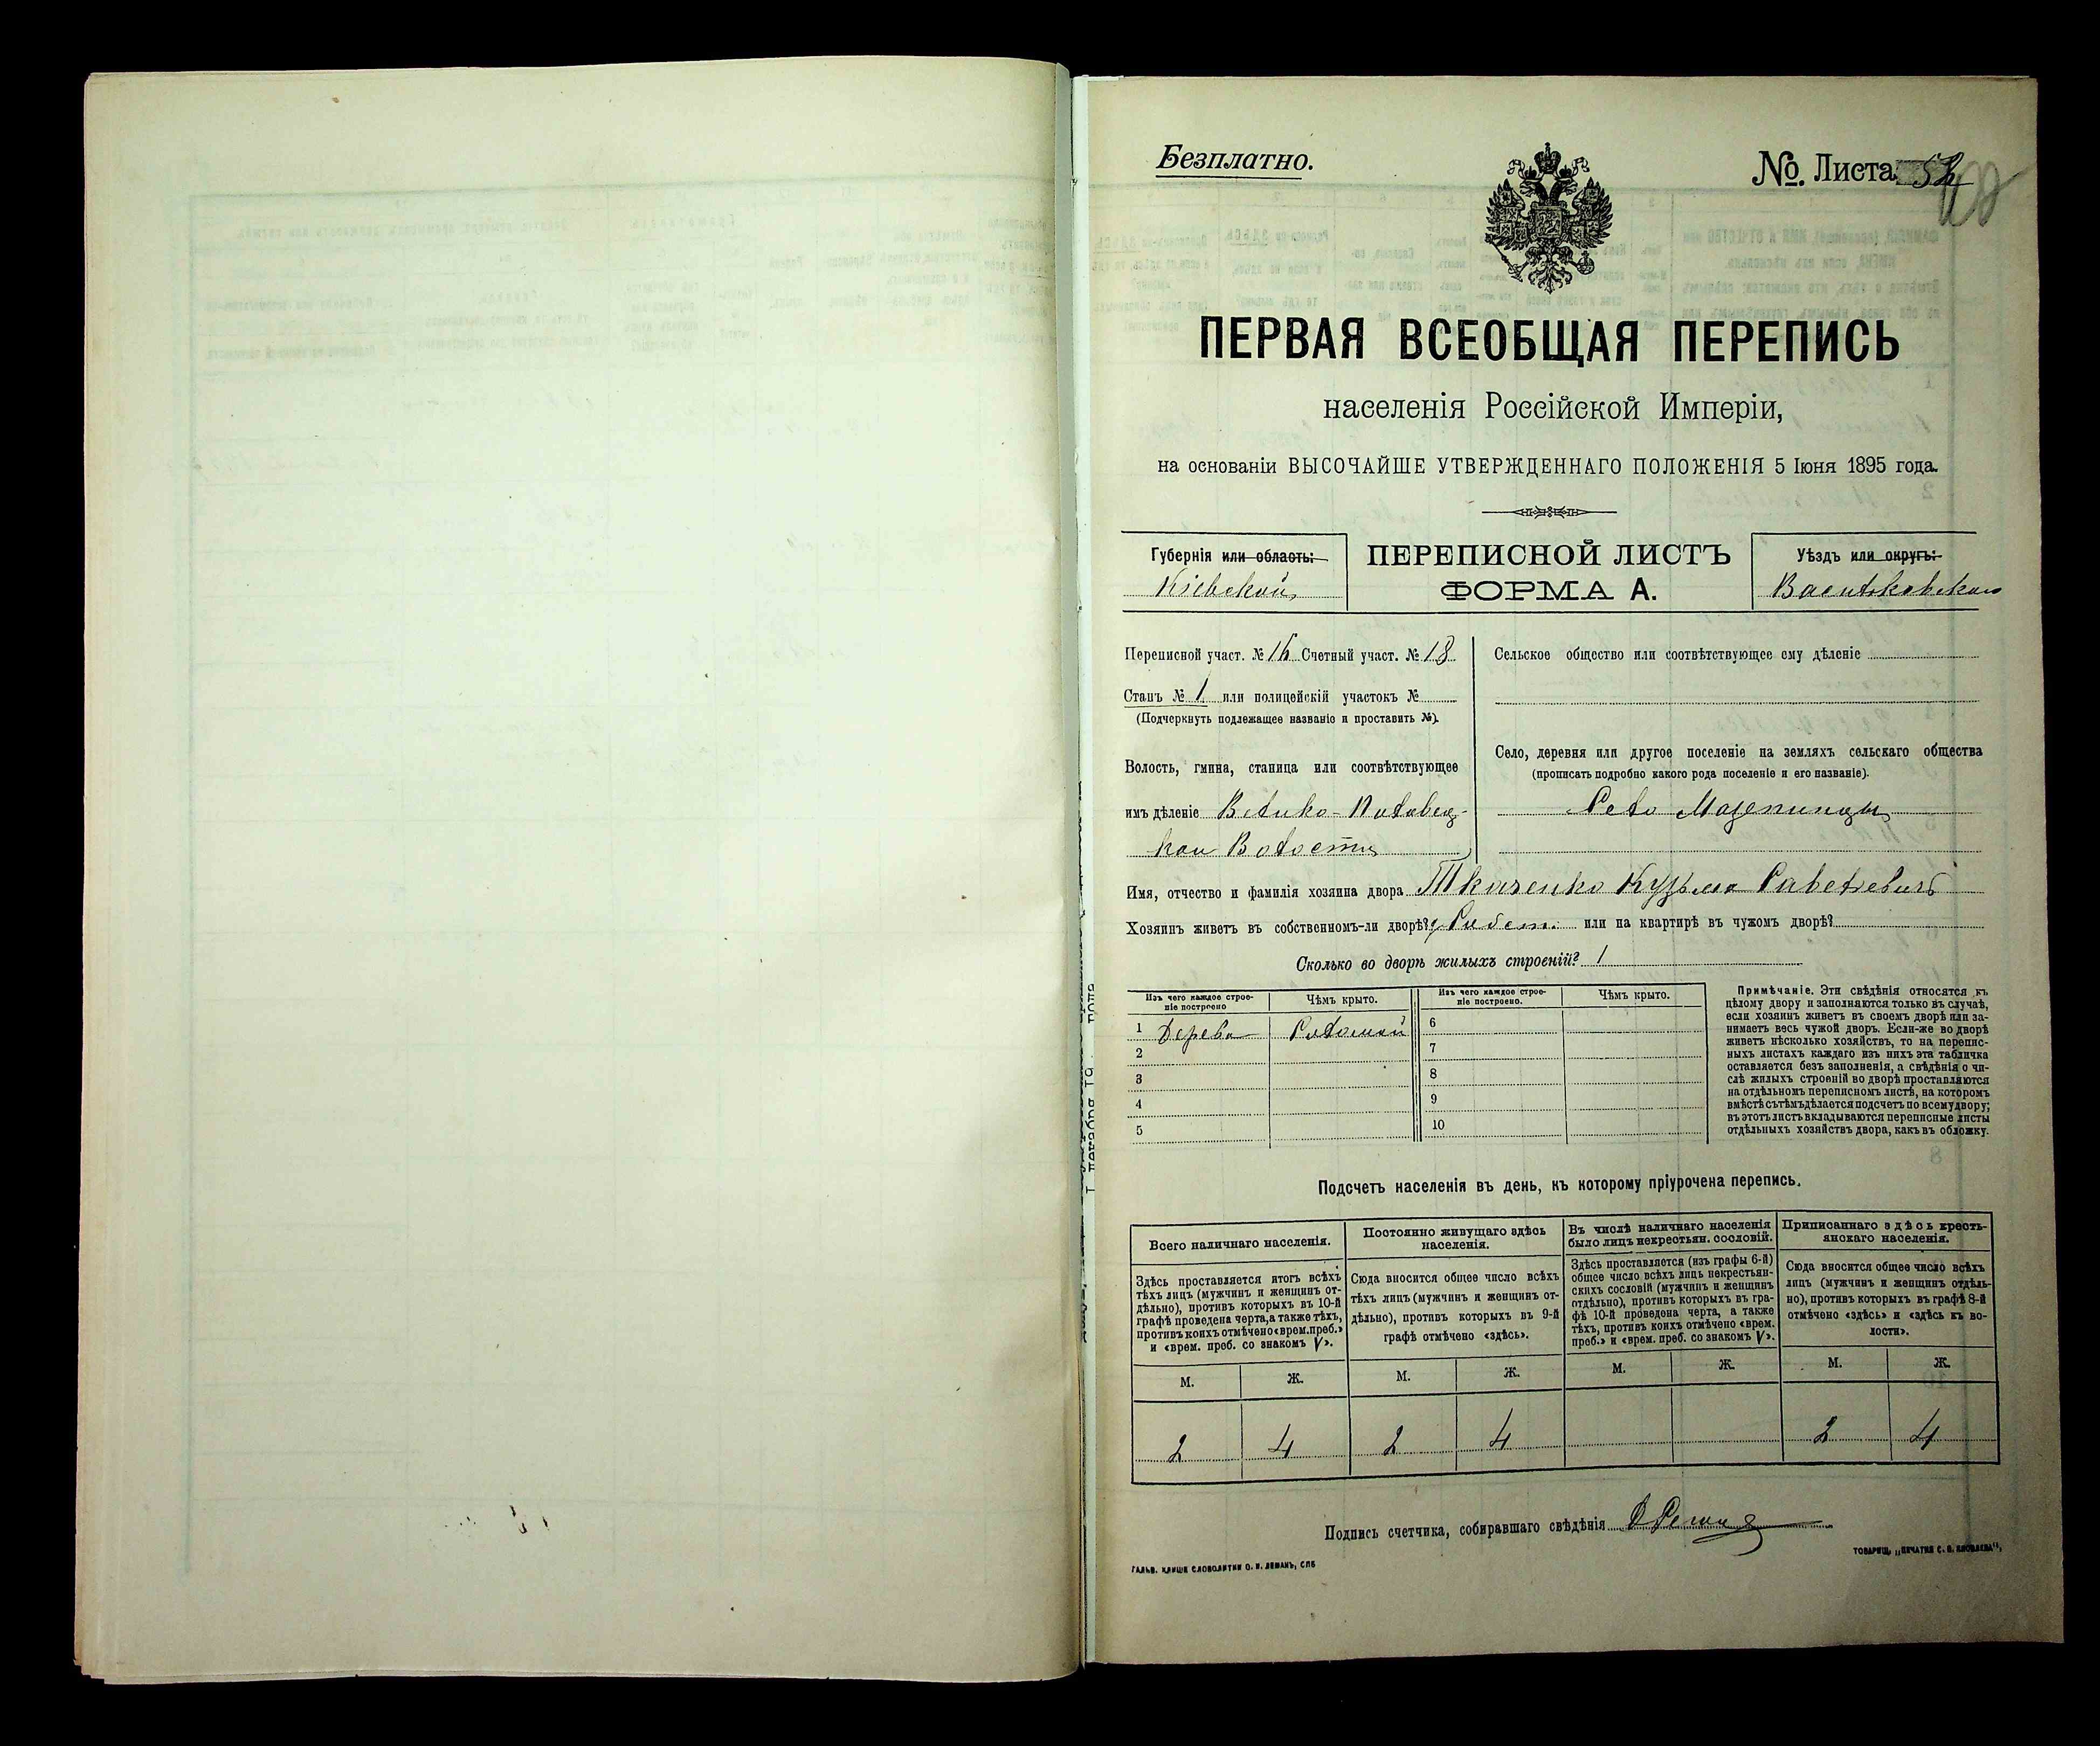 Безплатно.
№. Листа 52
ПЕРВАЯ ВСЕОБЩАЯ ПЕРЕПИСЬ
населенія Россійской Имперіи,
на основаніи ВЫСОЧАЙШЕ УТВЕРЖДЕННАГО ПОЛОЖЕНІЯ 5 Іюня 1895 года.
Губернія или область:
Кіевской
ПЕРЕПИСНОЙ ЛИСТЪ
ФОРМА А.
Уѣздъ или округъ:
Васильковскаго
Переписной участ. № 16 Счетный участ. № 18
Станъ № 1 или полицейскій участокъ №
(Подчеркнуть подлежащее названіе и проставить №).
Волость, гмина, станица или соотвѣтствующее
имъ дѣленіе Велико-Половец-
кой Волости
Сельское общество или соотвѣтствующее ему дѣленіе
Село, деревня или другое поселеніе на земляхъ сельскаго общества
(прописать подробно какого рода поселеніе и его названіе).
Село Мазепинцы
Имя, отчество и фамилія хозяина двора Ткаченко Кузьма Савельевичъ
Хозяинъ живетъ въ собственномъ-ли дворѣ? Собст. или на квартирѣ въ чужомъ дворѣ?
Сколько во дворѣ жилыхъ строеній? 1
Изъ чего каждое строе-
ніе построено
Чѣмъ крыто.
Изъ чего каждое строе-
ніе построено.
Чѣмъ крыто.
1 Дерева Соломой
2
3
4
5
6
7
8
9
10
Примѣчаніе. Эти свѣдѣнія относятся къ
цѣлому двору и заполняются только въ случаѣ,
если хозяинъ живетъ въ своемъ дворѣ или за-
нимаетъ весь чужой дворъ. Если-же во дворѣ
живетъ нѣсколько хозяйствъ, то на перепис-
ныхъ листахъ каждаго изъ нихъ эта табличка
оставляется безъ заполненія, а свѣдѣнія о чи-
слѣ жилыхъ строеній во дворѣ проставляются
на отдѣльномъ переписномъ листѣ, на которомъ
вмѣстѣ съ тѣмъ дѣлается подсчетъ по всему двору;
въ этотъ листъ вкладываются переписные листы
отдѣльныхъ хозяйствъ двора, какъ въ обложку.
Подсчетъ населенія въ день, къ которому пріурочена перепись.
Всего наличнаго населенія.
Постоянно живущаго здѣсь
населенія.
Въ числѣ наличнаго населенія
было лицъ некрестьян. сословій.
Приписаннаго здѣсь кресть-
янскаго населенія.
Здѣсь проставляется итогъ всѣхъ
тѣхъ лицъ (мужчинъ и женщинъ от-
дѣльно), противъ которыхъ въ 10-й
графѣ проведена черта, а также тѣхъ,
противъ коихъ отмѣчено «врем. преб.»
и «врем. преб. со знакомъ V».
Сюда вносится общее число всѣхъ
тѣхъ лицъ (мужчинъ и женщинъ от-
дѣльно), противъ которыхъ въ 9-й
графѣ отмѣчено «здѣсь».
Здѣсь проставляется (изъ графы 6-й)
общее число всѣхъ лицъ некрестьян-
скихъ сословій (мужчинъ и женщинъ
отдѣльно), противъ которыхъ въ гра-
фѣ 10-й проведена черта, а также
тѣхъ, противъ коихъ отмѣчено «врем.
преб.» и «врем. преб. со знакомъ V».
Сюда вносится общее число всѣхъ
лицъ (мужчинъ и женщинъ отдѣль-
но), противъ которыхъ въ графѣ 8-й
отмѣчено «здѣсь» и «здѣсь къ во-
лости».
М. Ж. М. Ж. М. Ж. М. Ж.
2 4 2 4 2 4
Подпись счетчика, собиравшаго свѣдѣнія
ГАЛЬВ. КЛИШЕ СЛОВОЛИТНИ О. И. ЛЕМАНЪ, СПБ
ТОВАРИЩ. „ПЕЧАТНЯ С. П. ЯКОВЛЕВА“,